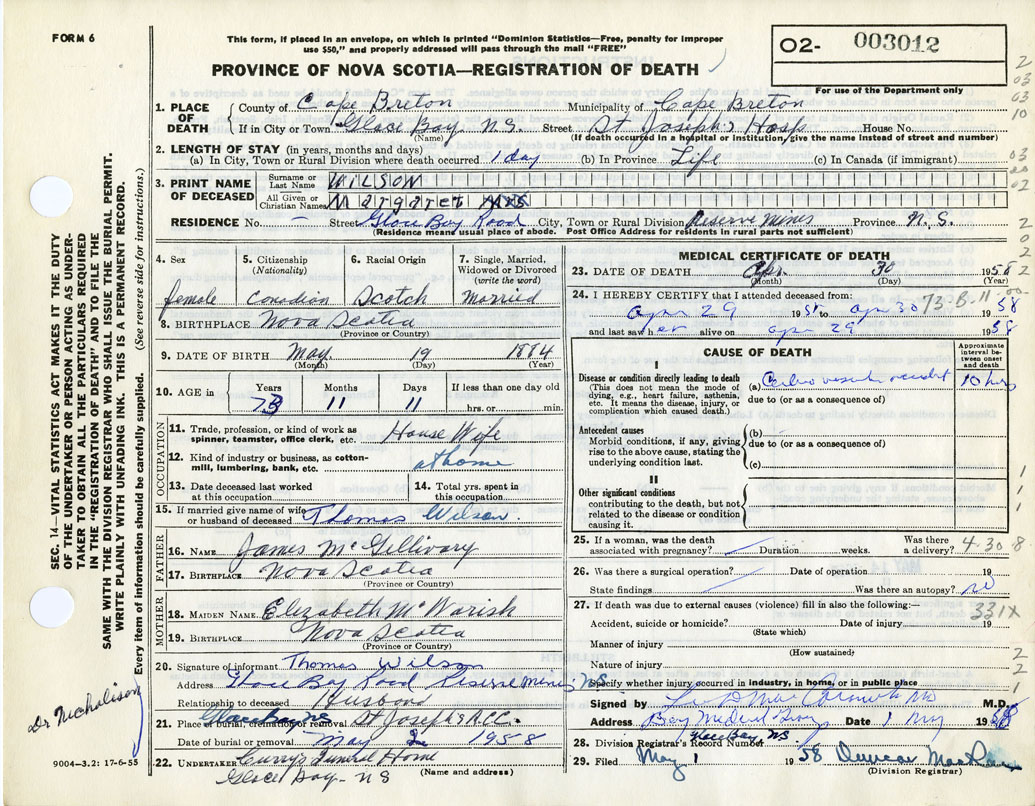 FORM 6
This form, if placed in an envelope, on which is printed "Dominion Statistics—Free, penalty for improper
use $50," and properly addressed will pass through the mail "FREE"
O2- 003012
PROVINCE OF NOVA SCOTIA—REGISTRATION OF DEATH
For use of the Department only
1. PLACE OF DEATH County of Cape Breton Municipality of Cape Breton
If in City or Town Glace Bay N.S. Street St Joseph's Hosp House No.
(Name) (If death occurred in a hospital or institution, give the name instead of street and number)
2. LENGTH OF STAY (in years, months and days)
(a) In City, Town or Rural Division where death occurred 1 day (b) In Province Life (c) In Canada (if immigrant)
3. PRINT NAME OF DECEASED
Surname or Last Name WILSON
All Given or Christian Names Margaret Mrs
RESIDENCE No. — Street Glace Bay Road City, Town or Rural Division Reserve Mines Province N.S.
(Residence means usual place of abode. Post Office Address for residents in rural parts not sufficient)
4. Sex female
5. Citizenship (Nationality) Canadian
6. Racial Origin Scotch
7. Single, Married, Widowed or Divorced (write the word) Married
8. BIRTHPLACE Nova Scotia
(Province or Country)
9. DATE OF BIRTH May 19 1884
(Month) (Day) (Year)
10. AGE in Years 73 Months 11 Days 11 If less than one day old
hrs. or min.
OCCUPATION
11. Trade, profession, or kind of work as spinner, teamster, office clerk, etc. House Wife
12. Kind of industry or business, as cotton-mill, lumbering, bank, etc. at home
13. Date deceased last worked at this occupation
14. Total yrs. spent in this occupation
15. If married give name of wife or husband of deceased Thomas Wilson
FATHER
16. NAME James McGillivary
17. BIRTHPLACE Nova Scotia
(Province or Country)
MOTHER
18. MAIDEN NAME Elizabeth McVarish
19. BIRTHPLACE Nova Scotia
(Province or Country)
20. Signature of informant Thomas Wilson
Address Glace Bay Road Reserve Mines NS
Relationship to deceased Husband
21. Place of burial, cremation or removal Glace Bay NS St Joseph's R.C.C.
Date of burial or removal May 2 1958
22. UNDERTAKER Curry's Funeral Home
Glace Bay - NS (Name and address)
9004—3.2: 17-6-55
MEDICAL CERTIFICATE OF DEATH
23. DATE OF DEATH Apr. 30 1958
(Month) (Day) (Year)
24. I HEREBY CERTIFY that I attended deceased from:
apr 29 1958 to apr 30 1958
73 B.11
and last saw her alive on apr 29 1958
CAUSE OF DEATH
Approximate interval between onset and death
I
Disease or condition directly leading to death
(This does not mean the mode of dying, e.g., heart failure, asthenia, etc. It means the disease, injury, or complication which caused death.)
(a) Cerebro vascular accident 10 hrs
due to (or as a consequence of)
Antecedent causes
Morbid conditions, if any, giving rise to the above cause, stating the underlying condition last.
(b)
due to (or as a consequence of)
(c)
II
Other significant conditions
contributing to the death, but not related to the disease or condition causing it.
25. If a woman, was the death associated with pregnancy? Duration weeks. Was there a delivery?
4.30.8
26. Was there a surgical operation? Date of operation 19
State findings Was there an autopsy? no
27. If death was due to external causes (violence) fill in also the following:—
331X
Accident, suicide or homicide? Date of injury 19
(State which)
Manner of injury
(How sustained)
Nature of injury
Specify whether injury occurred in industry, in home, or in public place
Signed by M.D.
Address Bay Medical Date 1 May 1958
Glace Bay, NS
28. Division Registrar's Record Number
29. Filed May 1 1958 Duncan MacRae
(Division Registrar)
SEC. 14—VITAL STATISTICS ACT MAKES IT THE DUTY
OF THE UNDERTAKER OR PERSON ACTING AS UNDER-
TAKER TO OBTAIN ALL THE PARTICULARS REQUIRED
IN THE "REGISTRATION OF DEATH" AND TO FILE THE
SAME WITH THE DIVISION REGISTRAR WHO SHALL ISSUE THE BURIAL PERMIT.
WRITE PLAINLY WITH UNFADING INK. THIS IS A PERMANENT RECORD.
Every item of information should be carefully supplied. (See reverse side for instructions.)
Dr Nicholson